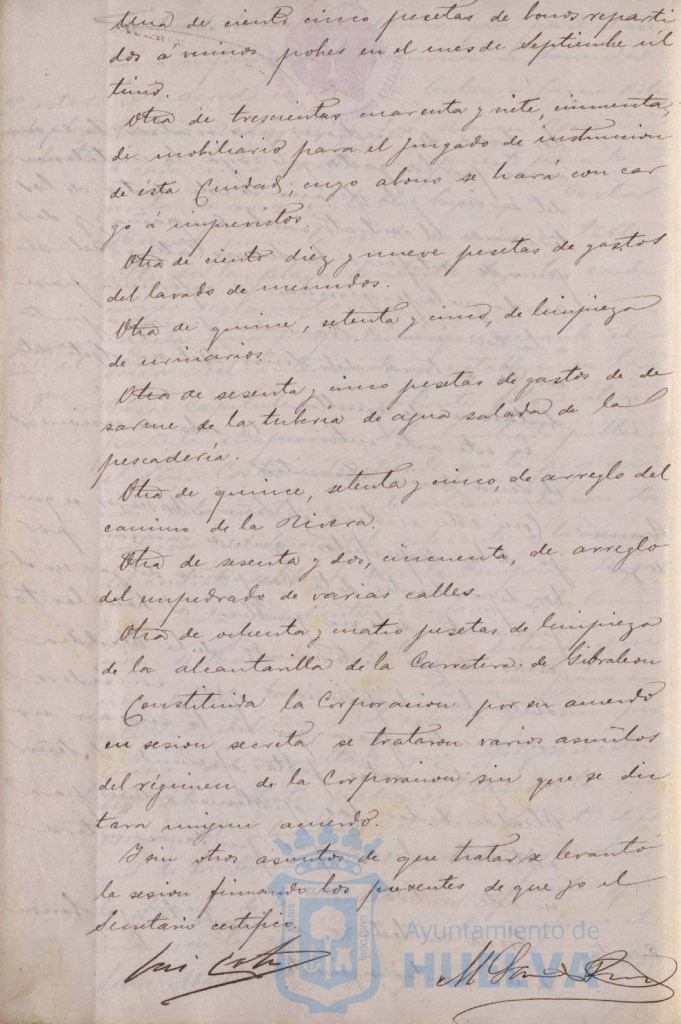 Una de ciento cinco pesetas de bonos reparti
dos a vecinos pobres en el mes de Septiembre úl
timo.
Otra de trescientas cuarenta y siete, cincuenta,
de mobiliario para el juzgado de instruccion
de ésta Ciudad, cuyo abono se hará con car
go á imprevistos.
Otra de ciento diez y nueve pesetas de gastos
del lavado de menudos.
Otra de quince, setenta y cinco, de limpieza
de urinarios.
Otra de sesenta y cinco pesetas de gastos de de
sarme de la tubería de agua salada de la
pescadería.
Otra de quince, setenta y cinco, de arreglo del
camino de la Rivera.
Otra de sesenta y dos, cincuenta, de arreglo
del empedrado de varias calles.
Otra de ochenta y cuatro pesetas de limpieza
de la alcantarilla de la Carretera de Gibraleon
Constituida la Corporacion por su acuerdo
en sesion secreta se trataron varios asuntos
del régimen de la Corporacion sin que se dic
tara ningun acuerdo.
Y sin otros asuntos de que tratar se levantó
la sesion firmando los presentes de que yo el
Secretario certifico.
Ayuntamiento de
HUELVA